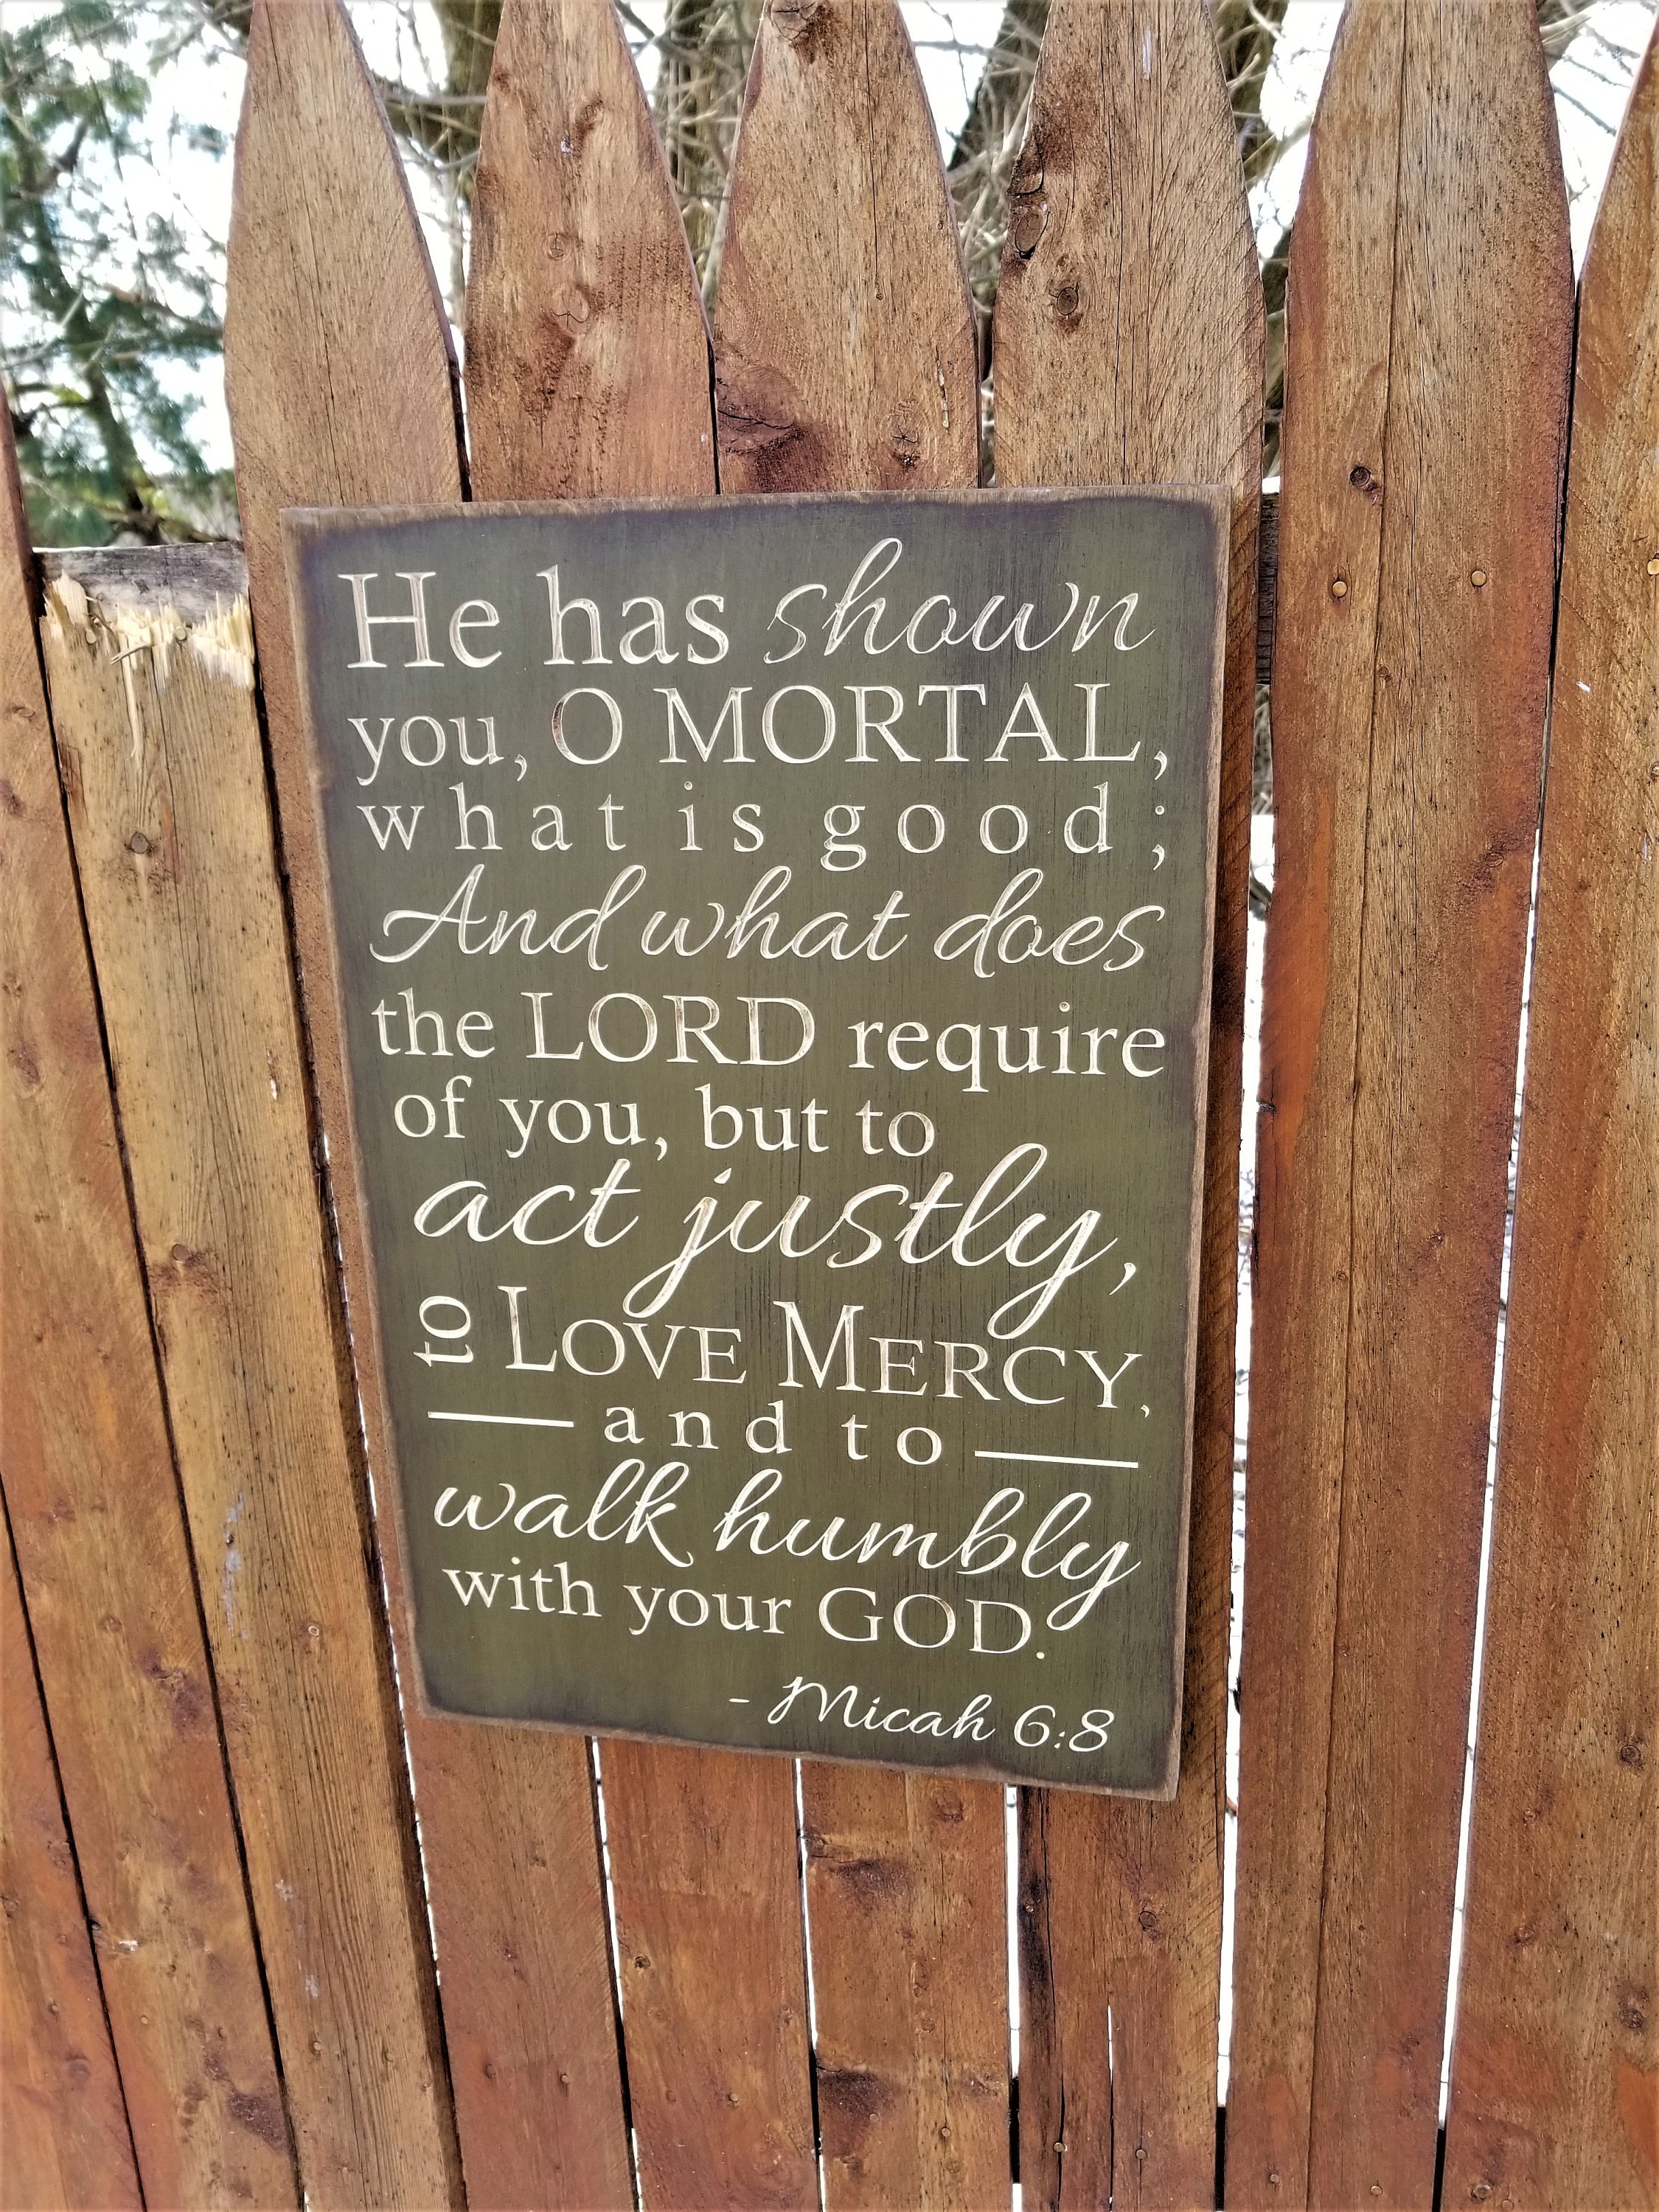 He has shown
you, O MORTAL,
what is good;
And what does
the LORD require
of you, but to
act justly,
to LOVE MERCY,
and to
walk humbly
with your GOD.
- Micah 6:8